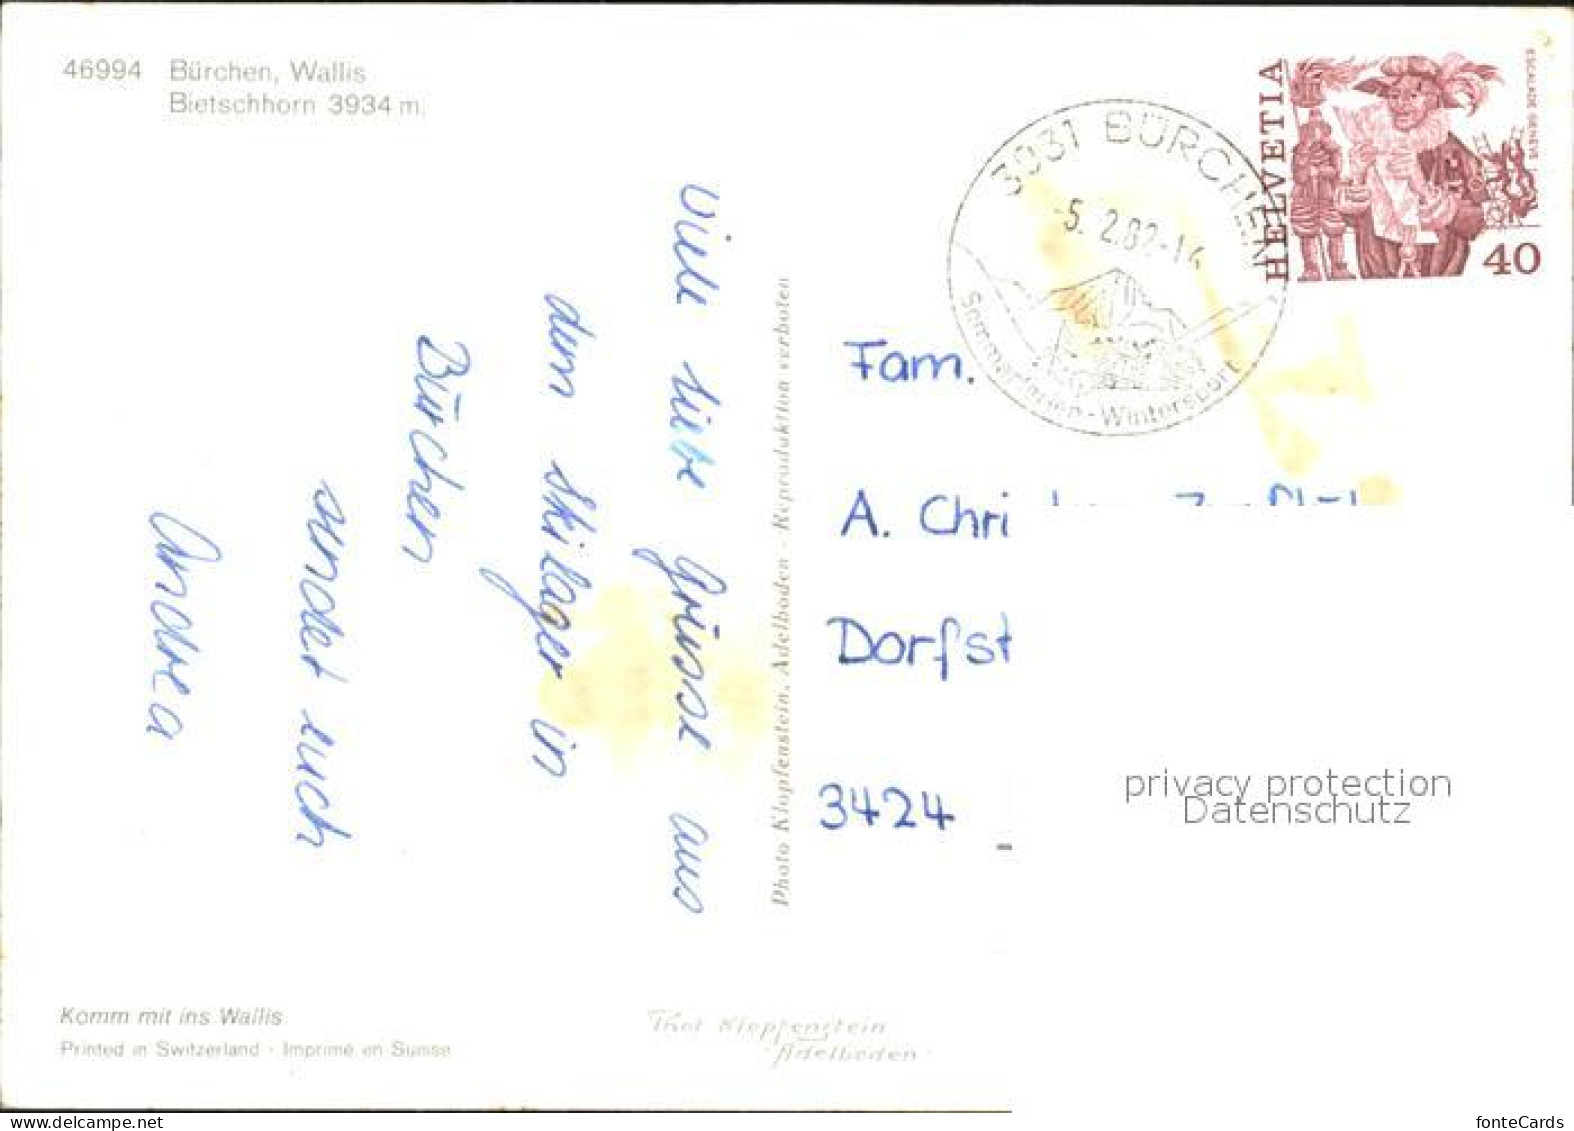 46994 Bürchen, Wallis
Bietschhorn 3934 m.
Viele liebe Grüsse aus
dem Skilager in
Bürchen
sendet euch
Andrea
Photo Klopfenstein, Adelboden - Reproduktion verboten
3931 BÜRCHEN
-5. 2.82-14
Sommerferien - Wintersport
HELVETIA
ESCALADE GENÈVE
40
Fam.
A. Chri
Dorfst
3424
privacy protection
Datenschutz
Komm mit ins Wallis
Printed in Switzerland · Imprimé en Suisse
Klopfenstein
Adelboden
www.delcampe.net
fonteCards